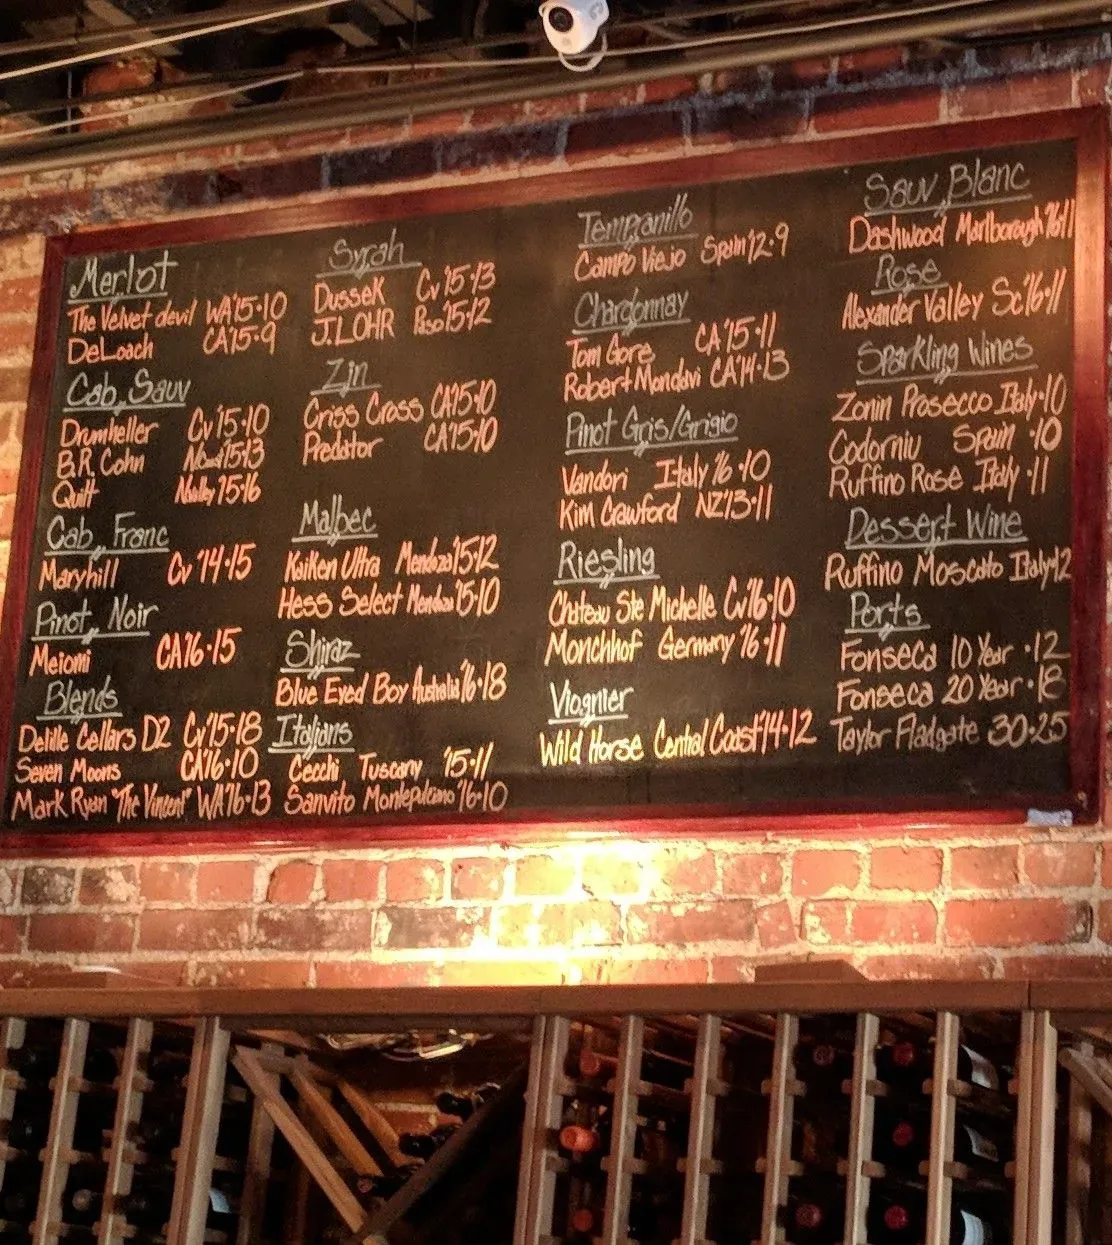 Merlot
The Velvet devil WA'15·10
DeLoach CA'15·9
Cab. Sauv
Drumheller Cv'15·10
B.R. Cohn '15·13
Quilt '15·16
Cab. Franc
Maryhill Cv '14·15
Pinot Noir
Meiomi CA'16·15
Blends
Delille Cellars D2 Cv'15·18
Seven Moons CA'16·10
Mark Ryan "The Vincent" WA'16·13
Syrah
Dussek Cv'15·13
J.LOHR Paso'15·12
Zin
Criss Cross CA'15·10
Predator CA'15·10
Malbec
Kaiken Ultra Mendoza'15·12
Hess Select Mendoza'15·10
Shiraz
Blue Eyed Boy Australia'16·18
Italians
Cecchi Tuscany '15·11
Sanvito Montepulcano '16·10
Tempanillo
Campo Viejo Spain'12·9
Chardonnay
Tom Gore CA'15·11
Robert Mondavi CA'14·13
Pinot Gris/Grigio
Vandori Italy '16·10
Kim Crawford NZ'13·11
Riesling
Chateau Ste Michelle Cv'16·10
Monchhof Germany '16·11
Viognier
Wild Horse Central Coast'14·12
Sauv. Blanc
Dashwood Marlborough'16·11
Rose
Alexander Valley Sc'16·11
Sparkling Wines
Zonin Prosecco Italy·10
Codorniu Spain ·10
Ruffino Rose Italy ·11
Dessert Wine
Ruffino Moscato Italy·12
Ports
Fonseca 10 Year ·12
Fonseca 20 Year ·18
Taylor Fladgate 30·25